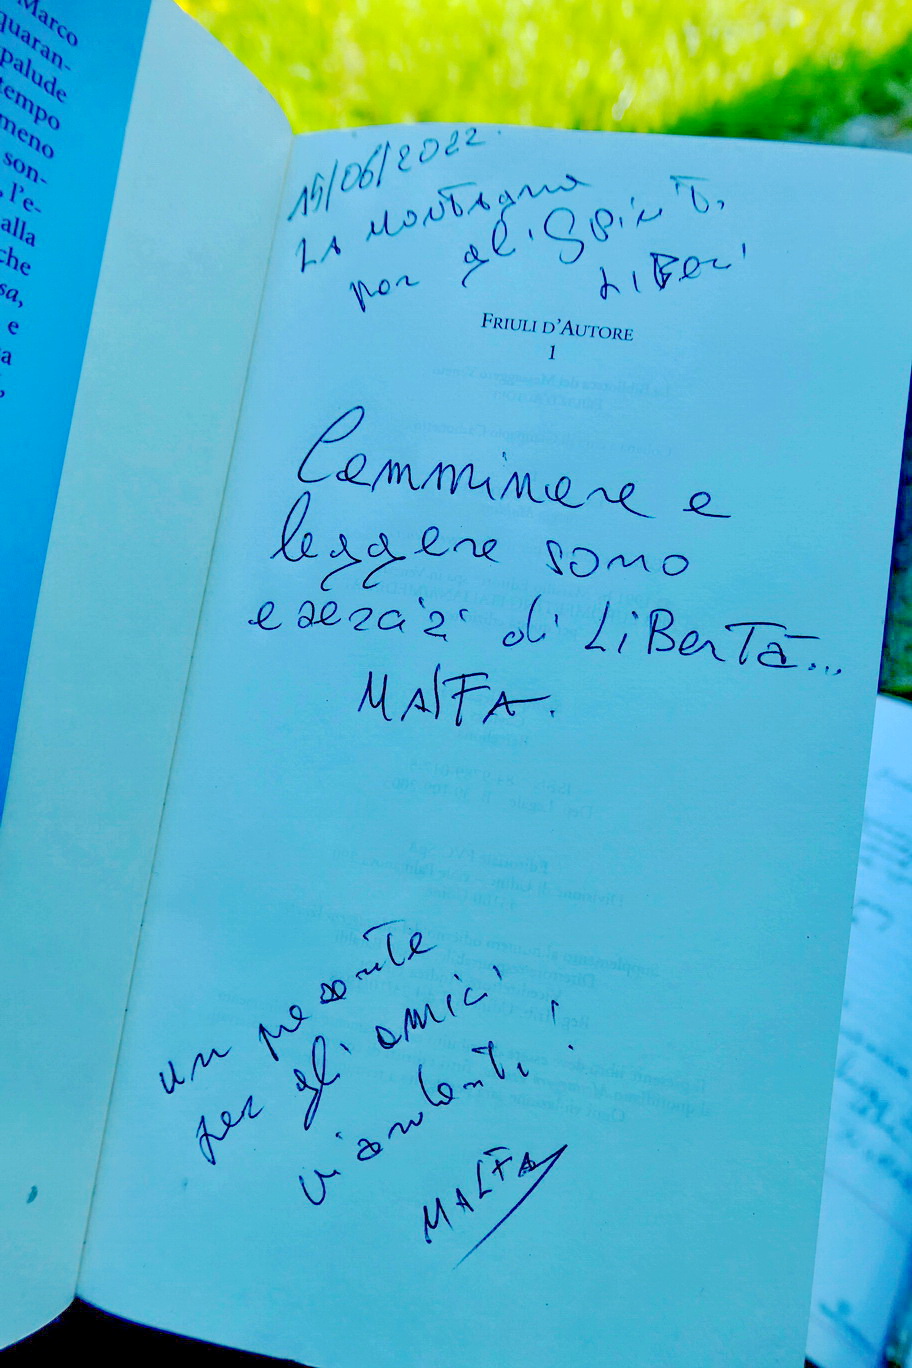 Marco
quaran-
palude
tempo
meno
son-
l'e-
alla
che
sa,
e
a
15/06/2022
LA MONTAGNA
per gli SPIRITI
LIBERI
FRIULI D'AUTORE
1
Camminare e
leggere sono
esercizi di LiBerTà...
MALFA.
un presente
per gli amici
viandanti!
MALFA